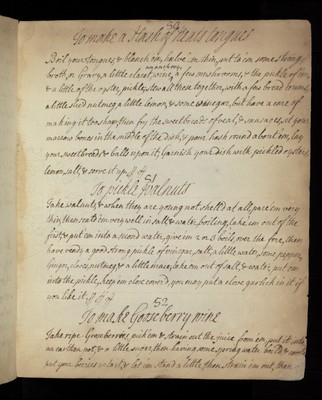 50
To make a Hash of Neats tongues
Boil your tongues, & blanch em, halve em thin, put to em some strong
an anchovy,
broth, or Gravy, a little claret, wine, a few mushrooms, & the pickle of em,
& a little of the oyster, pickle, stew all these together, with a few bread crumbs,
a little shed nutmeg, a little lemon, & some vinegar, but have a care of
making it too sharp, then fry the sweetbreads of veal, & sausages, set your
marrow bones in the middle of the dish, & pour hash round about em, lay
your sweetbreads, & balls upon it, Garnish your dish with pickled oysters,
lemon, salt, & serve it up
51
To pickle Walnuts
Take walnuts, & when they are young not shell'd at all, pare em very
thin, then scald em very well in salt & water, boiling, take em out of the
first, & put em into a second water, give em 2 or 3 boils, over the fire, then
have ready a good strong pickle of vinegar, salt, a little water, some pepper,
Ginger, cloves, nutmeg, & a little mace, take em out of salt, & water, put em
into the pickle, keep em close cover'd, you may put a clove garlick in it if
you like it
52
To make Gooseberry wine
Take ripe Gooseberries, pick em, & strain out the juice from em, put it into
an earthen pot, & a little sugar, then having some spring water
put your in last, & let em stand a little, then strain em out, then